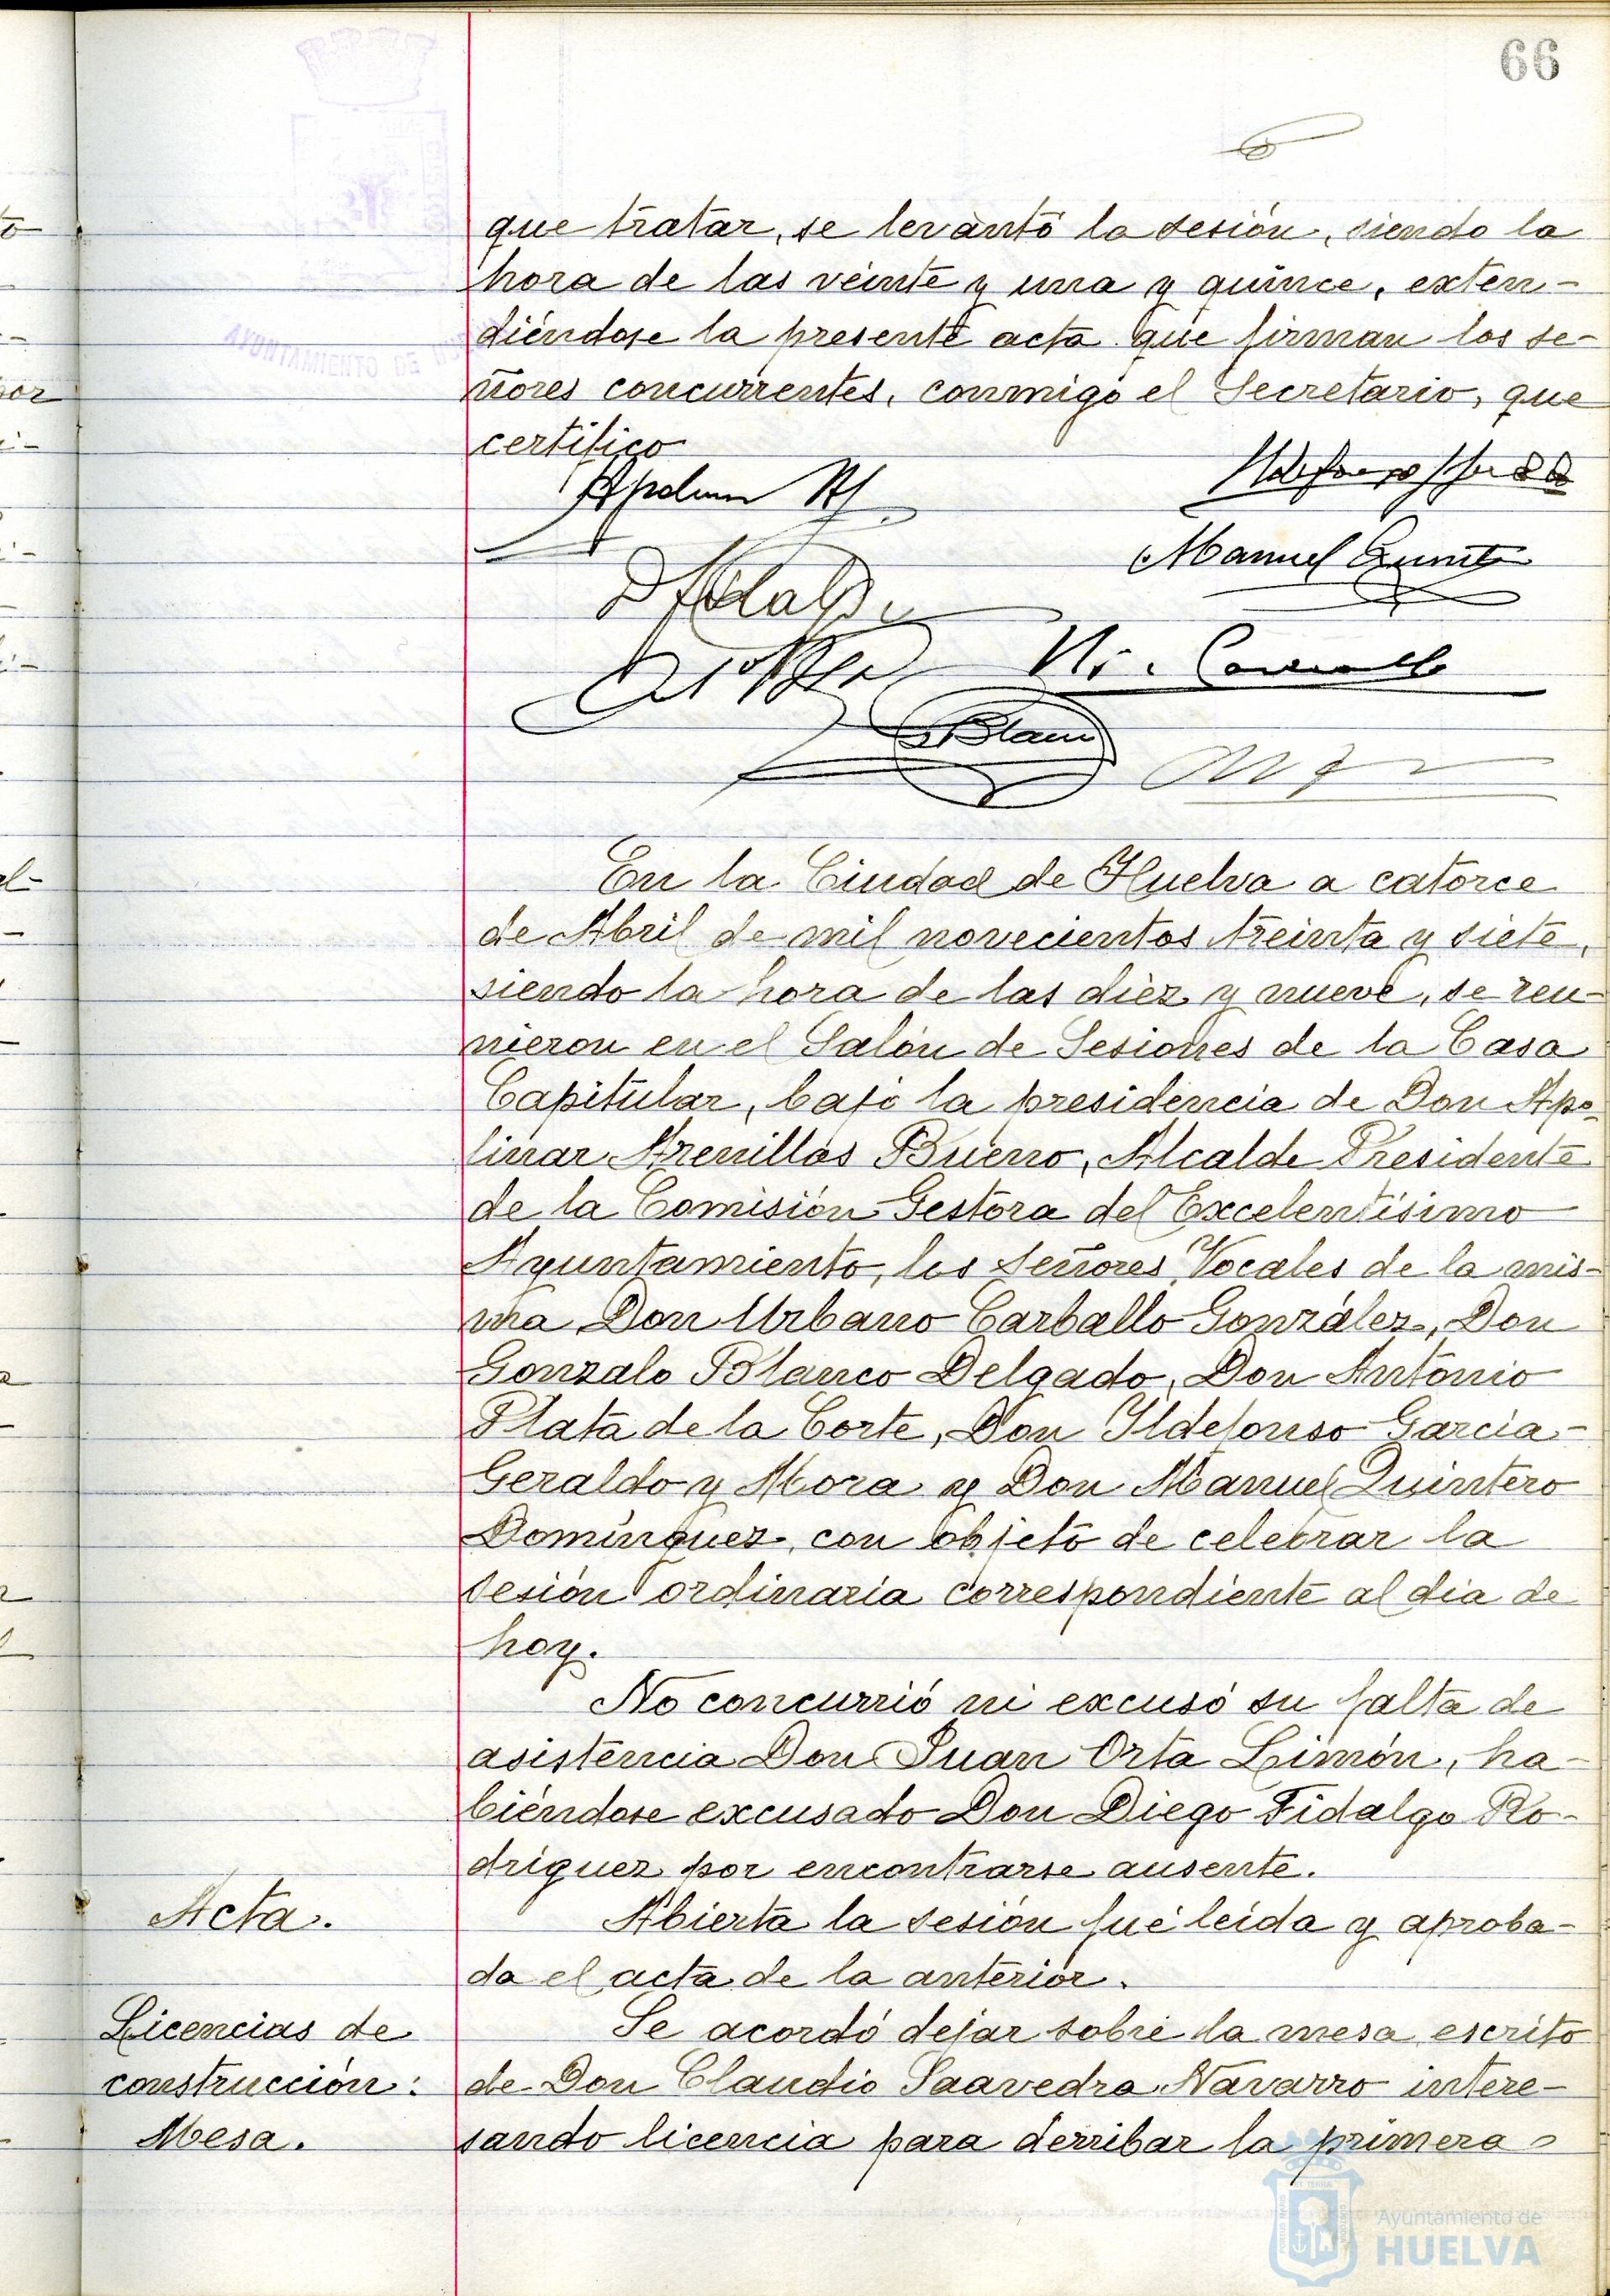 66
que tratar, se levantó la sesión, siendo la
hora de las veinte y una y quince, exten-
diéndose la presente acta que firman los se-
ñores concurrentes, conmigo el Secretario, que
certifico
Manuel Quintero
Blanco
AYUNTAMIENTO DE
En la Ciudad de Huelva a catorce
de Abril de mil novecientos treinta y siete,
siendo la hora de las diez y nueve, se reu-
nieron en el Salón de Sesiones de la Casa
Capitular, bajo la presidencia de Don Apo-
linar Arenillas Bueno, Alcalde Presidente
de la Comisión Gestora del Excelentísimo
Ayuntamiento, los Señores Vocales de la mis-
ma Don Urbano Carballo González, Don
Gonzalo Blanco Delgado, Don Antonio
Plata de la Corte, Don Ildefonso García-
Geraldo y Mora y Don Manuel Quintero
Domínguez, con objeto de celebrar la
sesión ordinaria correspondiente al dia de
hoy.
No concurrió ni excusó su falta de
asistencia Don Juan Orta Limón, ha-
biéndose excusado Don Diego Fidalgo Ro-
driguez por encontrarse ausente.
Acta.
Abierta la sesión fué leída y aproba-
da el acta de la anterior.
Licencias de
construcción:
Mesa.
Se acordó dejar sobre la mesa escrito
de Don Claudio Saavedra Navarro intere-
sando licencia para derribar la primera
Ayuntamiento de
HUELVA